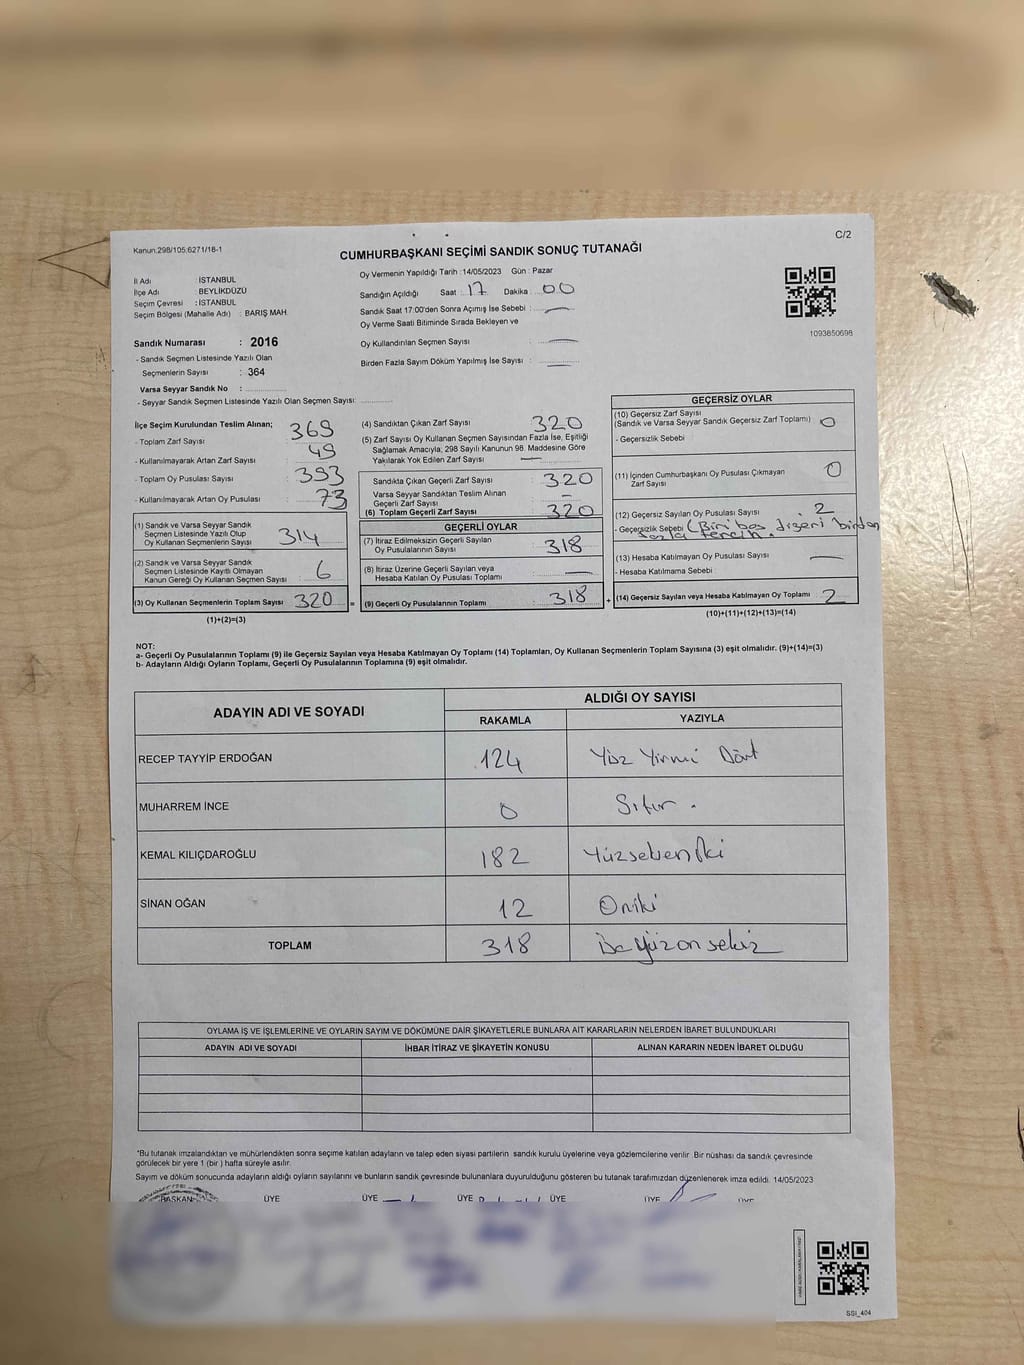 Kanun:298/105:6271/18-1
C/2
CUMHURBAŞKANI SEÇİMİ SANDIK SONUÇ TUTANAĞI
İl Adı : İSTANBUL
İlçe Adı : BEYLİKDÜZÜ
Seçim Çevresi : İSTANBUL
Seçim Bölgesi (Mahalle Adı) : BARIŞ MAH.
Sandık Numarası : 2016
- Sandık Seçmen Listesinde Yazılı Olan
Seçmenlerin Sayısı : 364
Varsa Seyyar Sandık No :
- Seyyar Sandık Seçmen Listesinde Yazılı Olan Seçmen Sayısı:
Oy Vermenin Yapıldığı Tarih :14/05/2023 Gün : Pazar
Sandığın Açıldığı Saat : 17 Dakika : 00
Sandık Saat 17:00'den Sonra Açımış İse Sebebi : —
Oy Verme Saati Bitiminde Sırada Bekleyen ve
Oy Kullandırılan Seçmen Sayısı : —
Birden Fazla Sayım Döküm Yapılmış İse Sayısı : —
1093850698
İlçe Seçim Kurulundan Teslim Alınan;
- Toplam Zarf Sayısı 369
- Kullanılmayarak Artan Zarf Sayısı 49
- Toplam Oy Pusulası Sayısı 393
- Kullanılmayarak Artan Oy Pusulası 73
(1) Sandık ve Varsa Seyyar Sandık
Seçmen Listesinde Yazılı Olup
Oy Kullanan Seçmenlerin Sayısı 314
(2) Sandık ve Varsa Seyyar Sandık
Seçmen Listesinde Kayıtlı Olmayan
Kanun Gereği Oy Kullanan Seçmen Sayısı : 6
(3) Oy Kullanan Seçmenlerin Toplam Sayısı 320 =
(1)+(2)=(3)
(4) Sandıktan Çıkan Zarf Sayısı 320
(5) Zarf Sayısı Oy Kullanan Seçmen Sayısından Fazla İse, Eşitliği
Sağlamak Amacıyla; 298 Sayılı Kanunun 98. Maddesine Göre
Yakılarak Yok Edilen Zarf Sayısı —
Sandıkta Çıkan Geçerli Zarf Sayısı 320
Varsa Seyyar Sandıktan Teslim Alınan
Geçerli Zarf Sayısı : -
(6) Toplam Geçerli Zarf Sayısı : 320
GEÇERLİ OYLAR
(7) İtiraz Edilmeksizin Geçerli Sayılan
Oy Pusulalarının Sayısı : 318
(8) İtiraz Üzerine Geçerli Sayılan veya
Hesaba Katılan Oy Pusulası Toplamı : —
(9) Geçerli Oy Pusulalarının Toplamı : 318 +
GEÇERSİZ OYLAR
(10) Geçersiz Zarf Sayısı
(Sandık ve Varsa Seyyar Sandık Geçersiz Zarf Toplamı) : 0
- Geçersizlik Sebebi :
(11) İçinden Cumhurbaşkanı Oy Pusulası Çıkmayan
Zarf Sayısı : 0
(12) Geçersiz Sayılan Oy Pusulası Sayısı : 2
- Geçersizlik Sebebi : (Biri boş diğeri birden
fazla tercih.
(13) Hesaba Katılmayan Oy Pusulası Sayısı : —
- Hesaba Katılmama Sebebi :
(14) Geçersiz Sayılan veya Hesaba Katılmayan Oy Toplamı : 2
(10)+(11)+(12)+(13)=(14)
NOT:
a- Geçerli Oy Pusulalarının Toplamı (9) ile Geçersiz Sayılan veya Hesaba Katılmayan Oy Toplamı (14) Toplamları, Oy Kullanan Seçmenlerin Toplam Sayısına (3) eşit olmalıdır. (9)+(14)=(3)
b- Adayların Aldığı Oyların Toplamı, Geçerli Oy Pusulalarının Toplamına (9) eşit olmalıdır.
ADAYIN ADI VE SOYADI
ALDIĞI OY SAYISI
RAKAMLA YAZIYLA
RECEP TAYYİP ERDOĞAN 124 Yüz Yirmi Dört
MUHARREM İNCE 0 Sıfır.
KEMAL KILIÇDAROĞLU 182 Yüzseksen İki
SİNAN OĞAN 12 Oniki
TOPLAM 318 Üç yüz on sekiz
OYLAMA İŞ VE İŞLEMLERİNE VE OYLARIN SAYIM VE DÖKÜMÜNE DAİR ŞİKAYETLERLE BUNLARA AİT KARARLARIN NELERDEN İBARET BULUNDUKLARI
ADAYIN ADI VE SOYADI İHBAR İTİRAZ VE ŞİKAYETİN KONUSU ALINAN KARARIN NEDEN İBARET OLDUĞU
*Bu tutanak imzalandıktan ve mühürlendikten sonra seçime katılan adayların ve talep eden siyasi partilerin sandık kurulu üyelerine veya gözlemcilerine verilir. Bir nüshası da sandık çevresinde
görülecek bir yere 1 (bir ) hafta süreyle asılır.
Sayım ve döküm sonucunda adayların aldığı oyların sayılarını ve bunların sandık çevresinde bulunanlara duyurulduğunu gösteren bu tutanak tarafımızdan düzenlenerek imza edildi. 14/05/2023
BAŞKAN ÜYE ÜYE ÜYE ÜYE ÜYE ÜYE
SSI_404